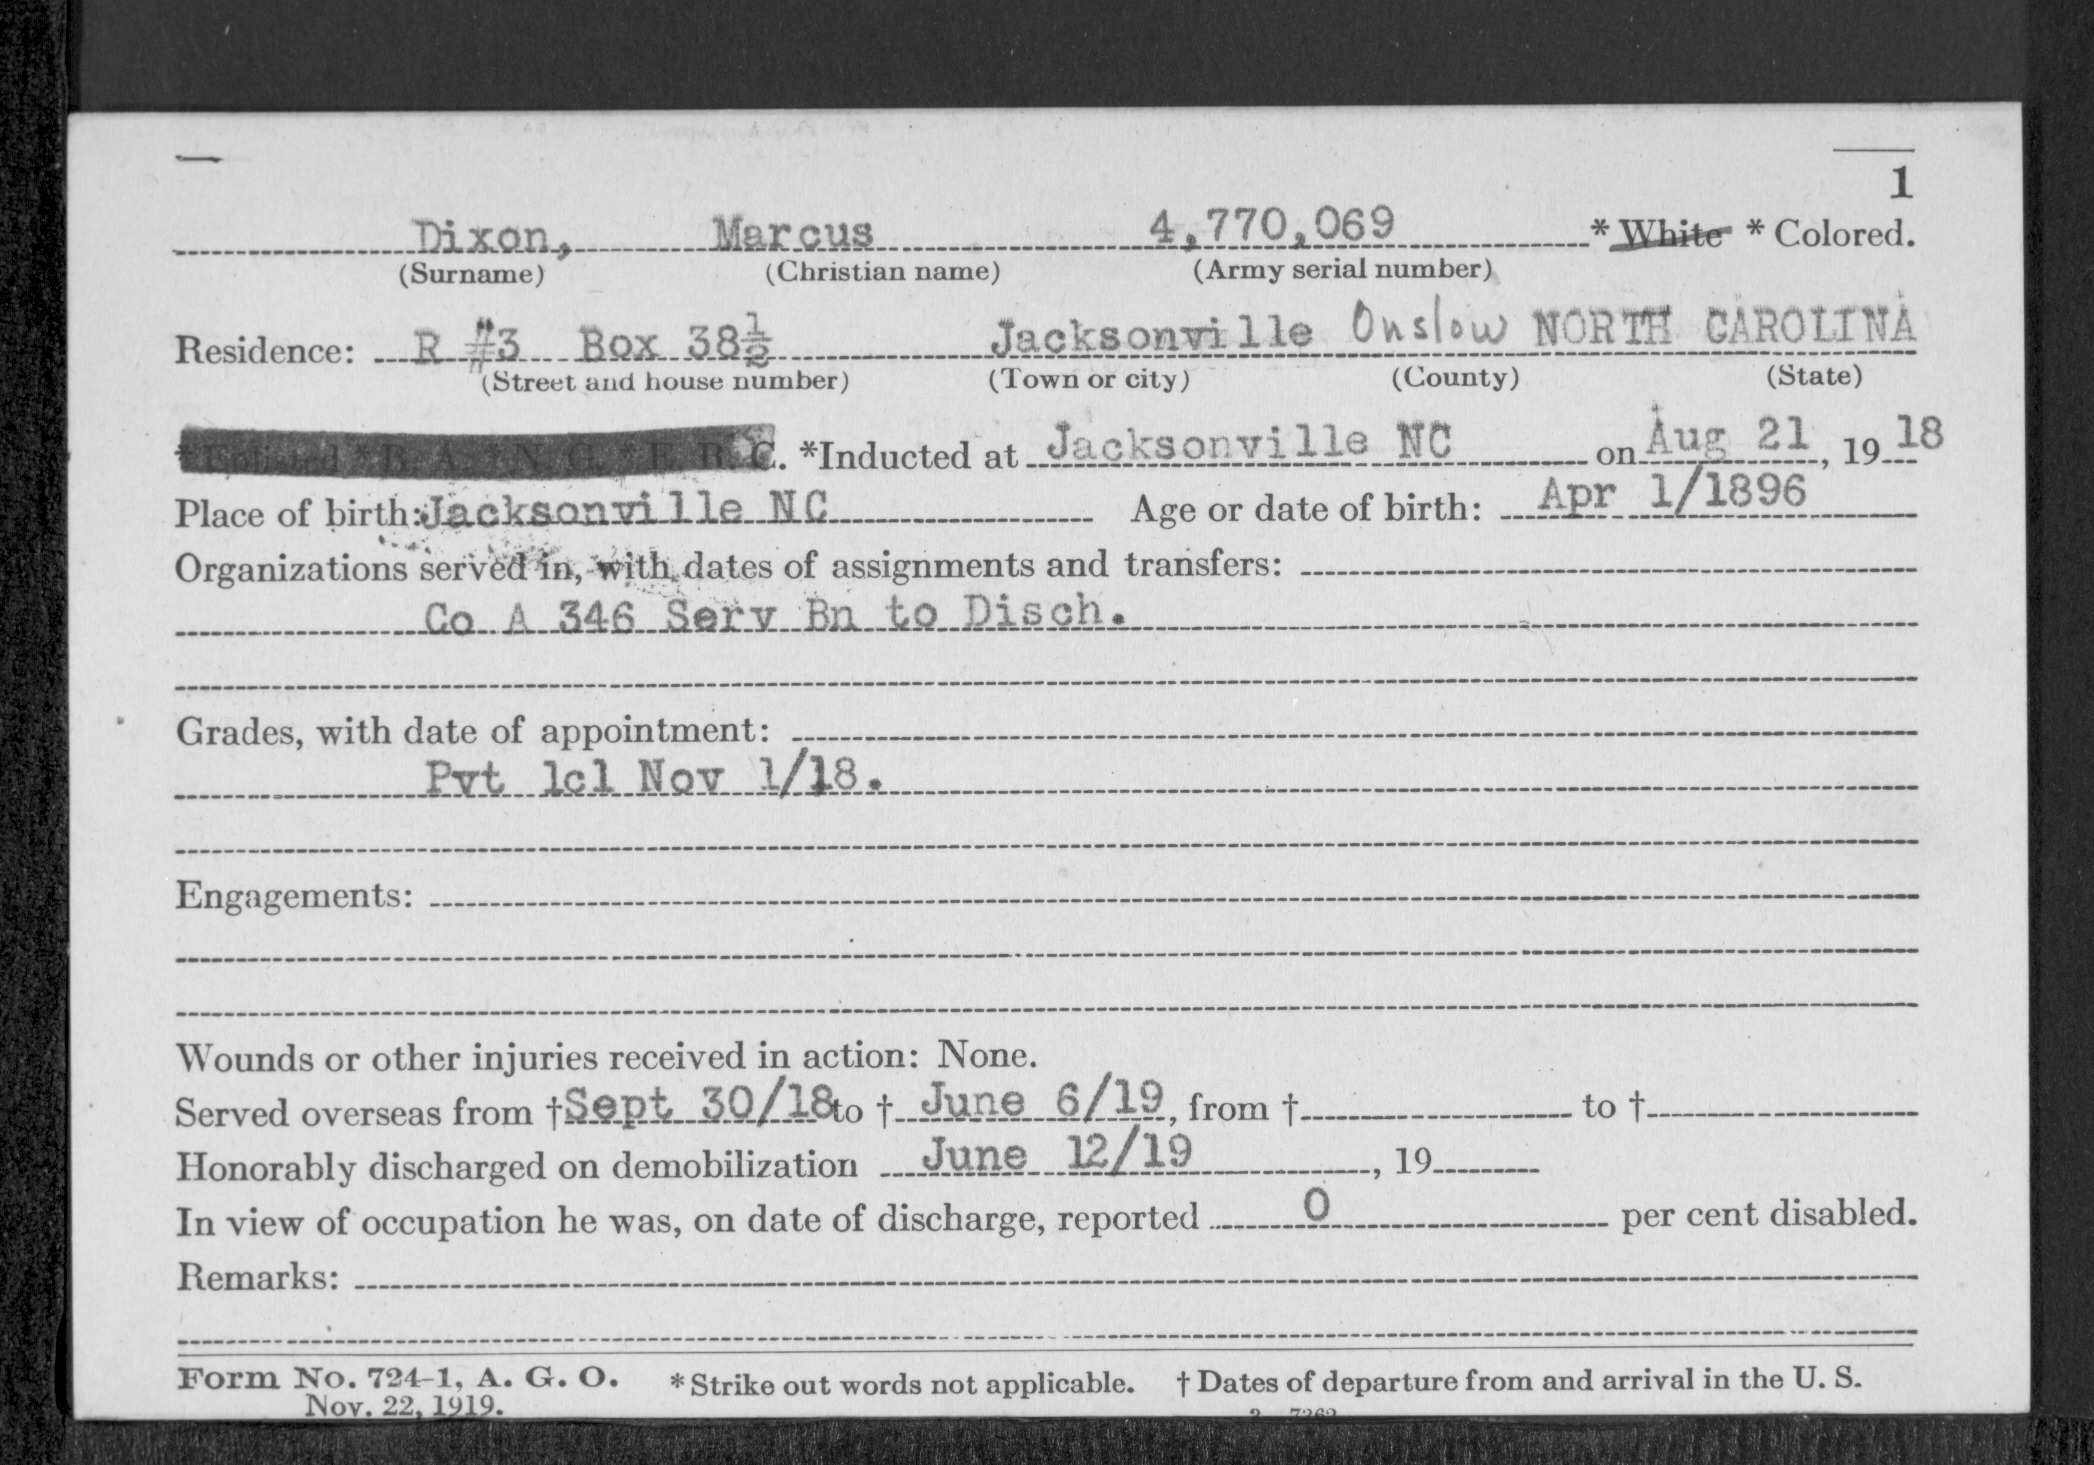 1
Dixon, Marcus 4,770,069 * White * Colored.
(Surname) (Christian name) (Army serial number)
Residence: R #3 Box 38½ Jacksonville Onslow NORTH CAROLINA
(Street and house number) (Town or city) (County) (State)
* Enlisted * R. A. * N. G. * E. R. C. *Inducted at Jacksonville NC on Aug 21, 19 18
Place of birth: Jacksonville NC Age or date of birth: Apr 1/1896
Organizations served in, with dates of assignments and transfers:
Co A 346 Serv Bn to Disch.
Grades, with date of appointment:
Pvt 1cl Nov 1/18.
Engagements:
Wounds or other injuries received in action: None.
Served overseas from †Sept 30/18 to † June 6/19, from † to †
Honorably discharged on demobilization June 12/19, 19
In view of occupation he was, on date of discharge, reported 0 per cent disabled.
Remarks:
Form No. 724-1, A. G. O. * Strike out words not applicable. † Dates of departure from and arrival in the U. S.
Nov. 22, 1919.